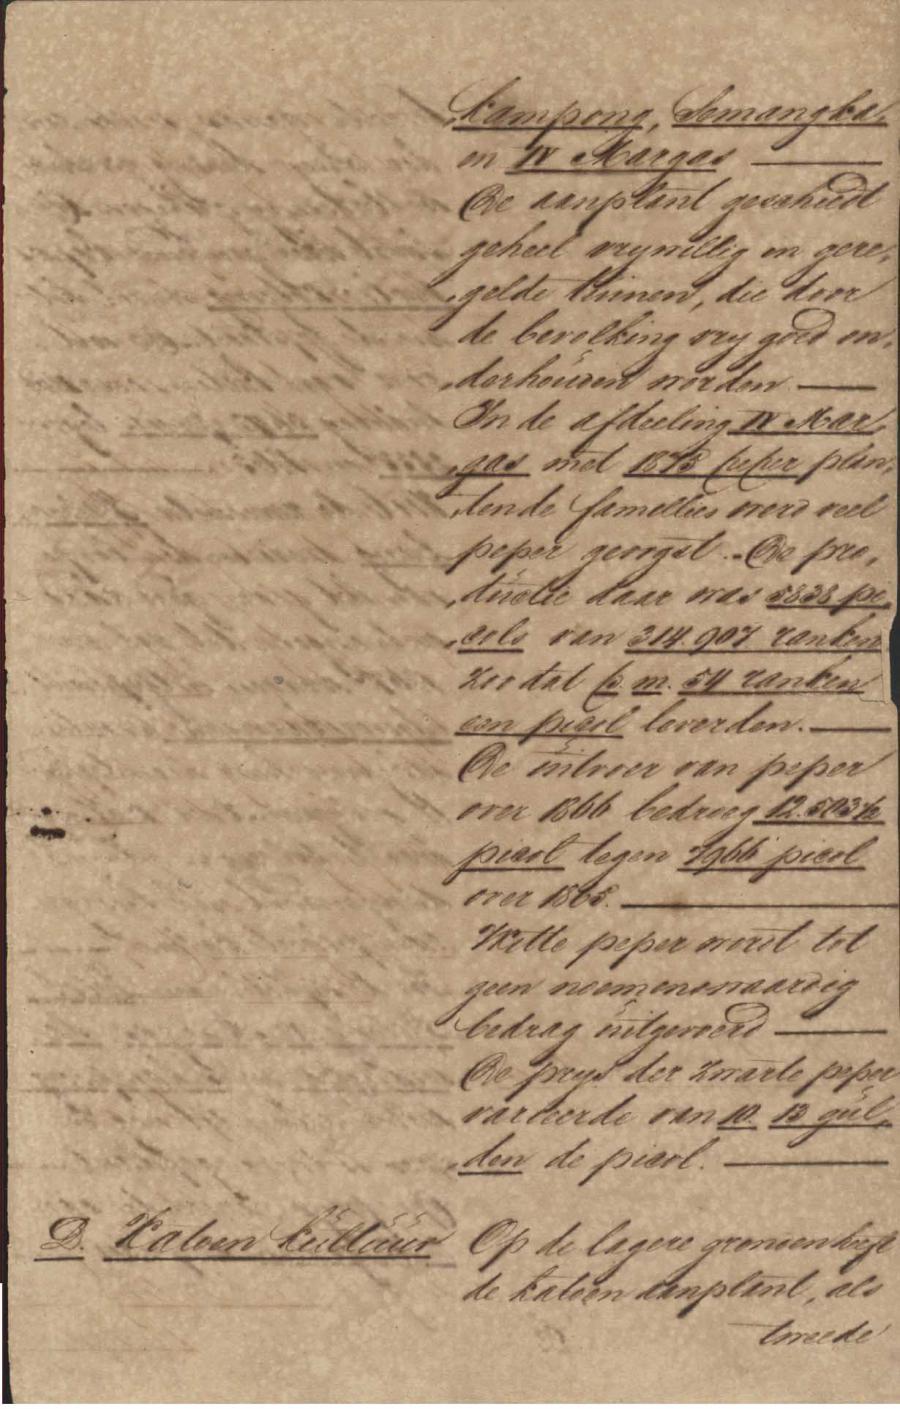 „kampong, Semangka
en IV Margas
De aanplant geschiedt
geheel vrywillig in gere„
„gelde tuinen, die door
de bevolking vry goed on„
„derhouden worden
In de afdeeling IV Mar
„gas met 1875 peper plan„
„tende famellies werd veel
peper geoogst. De pro„
„ductie daar was 5838 pi„
„cols van 314.907 ranken
zoo dat p. m. 54 ranken
een picol leverden.
De uitvoer van peper
over 1866 bedroeg 12.503½
picol tegen 7966 picol
over 1865.
Witte peper word tot
geen noemenswaardig
bedrag uitgevoerd
De prys der zwarte peper
varieerde van 10. 13 gul„
„den de picol.
D. Katoen kultuur
Op de lagere gronden heeft
de katoen aanplant, als
tweede